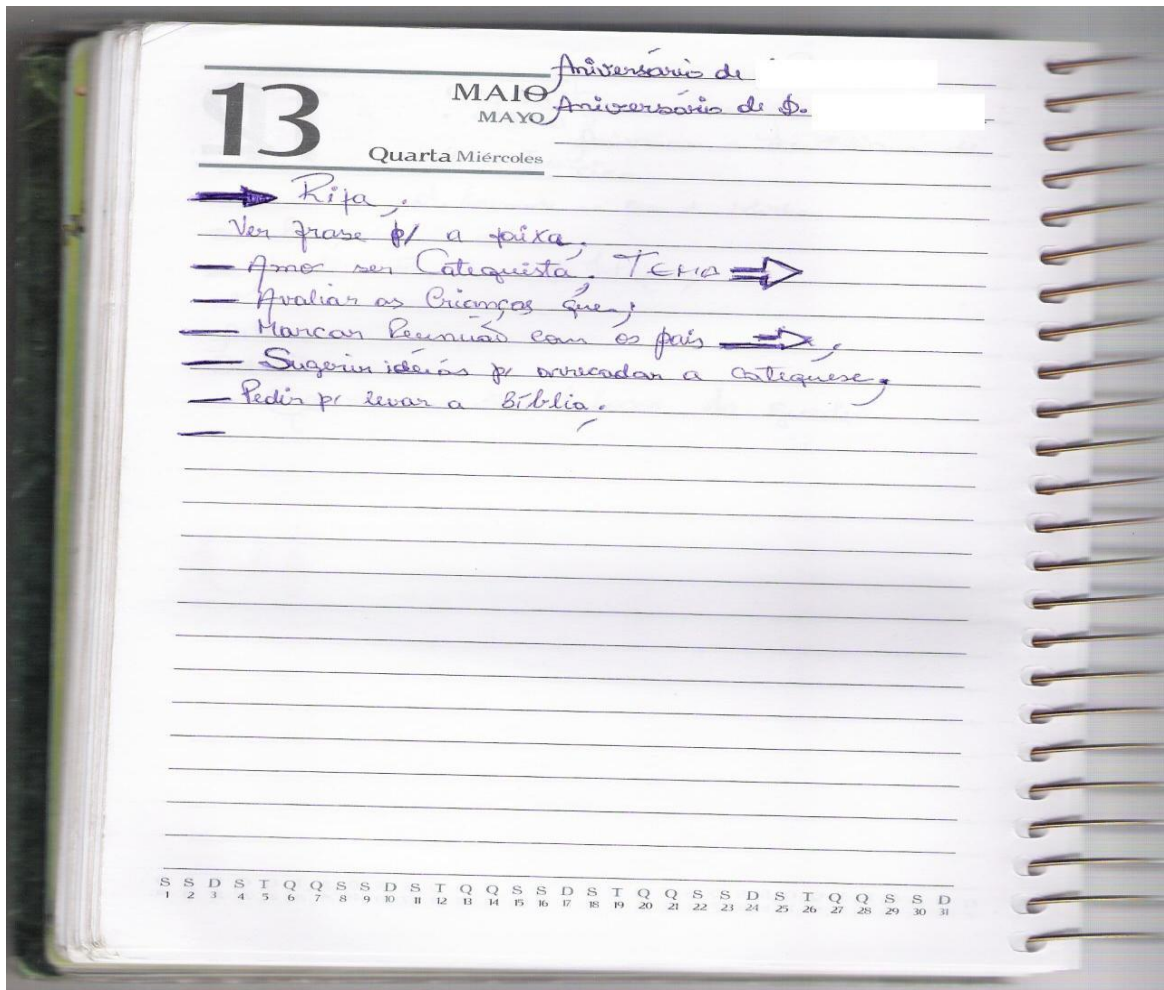 Aniversário de
Aniversário de D.
13
MAIO
MAYO
Quarta Miércoles
Rifa,
Ver frase p/ a faixa;
Amo ser Catequista. TEMA
Avaliar as Crianças que;
Marcar Reunião com os pais
Sugerir idéias p/ arrecadar a Catequese;
Pedir p/ levar a Bíblia.
S S D S T Q Q S S D S T Q Q S S D S T Q Q S S D S T Q Q S S D
1 2 3 4 5 6 7 8 9 10 11 12 13 14 15 16 17 18 19 20 21 22 23 24 25 26 27 28 29 30 31